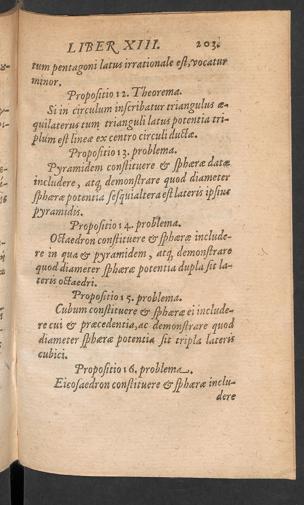 LIBER XIII. 203.
tum pentagoni latus irrationale est, vocatur
minor.
Propositio 12. Theorema.
Si in circulum inscribatur triangulus æ-
quilaterus tum trianguli latus potentia tri-
plum est lineæ ex centro circuli ductæ.
Propositio 13. problema.
Pyramidem constituere & sphæræ datæ
includere, atq; demonstrare quod diameter
sphæræ potentia sesquialtera est lateris ipsius
pyramidis.
Propositio 14. problema.
Octaedron constituere & sphæræ include-
re in qua & pyramidem, atq; demonstrare
quod diameter sphæræ potentia dupla sit la-
teris octaedri.
Propositio 15. problema.
Cubum constituere & sphæræ ei include-
re cui & præcedentia, ac demonstrare quod
diameter sphæræ potentia sit tripla lateris
cubici.
Propositio 16. problema.
Eicosaedron constituere & sphæræ inclu-
dere